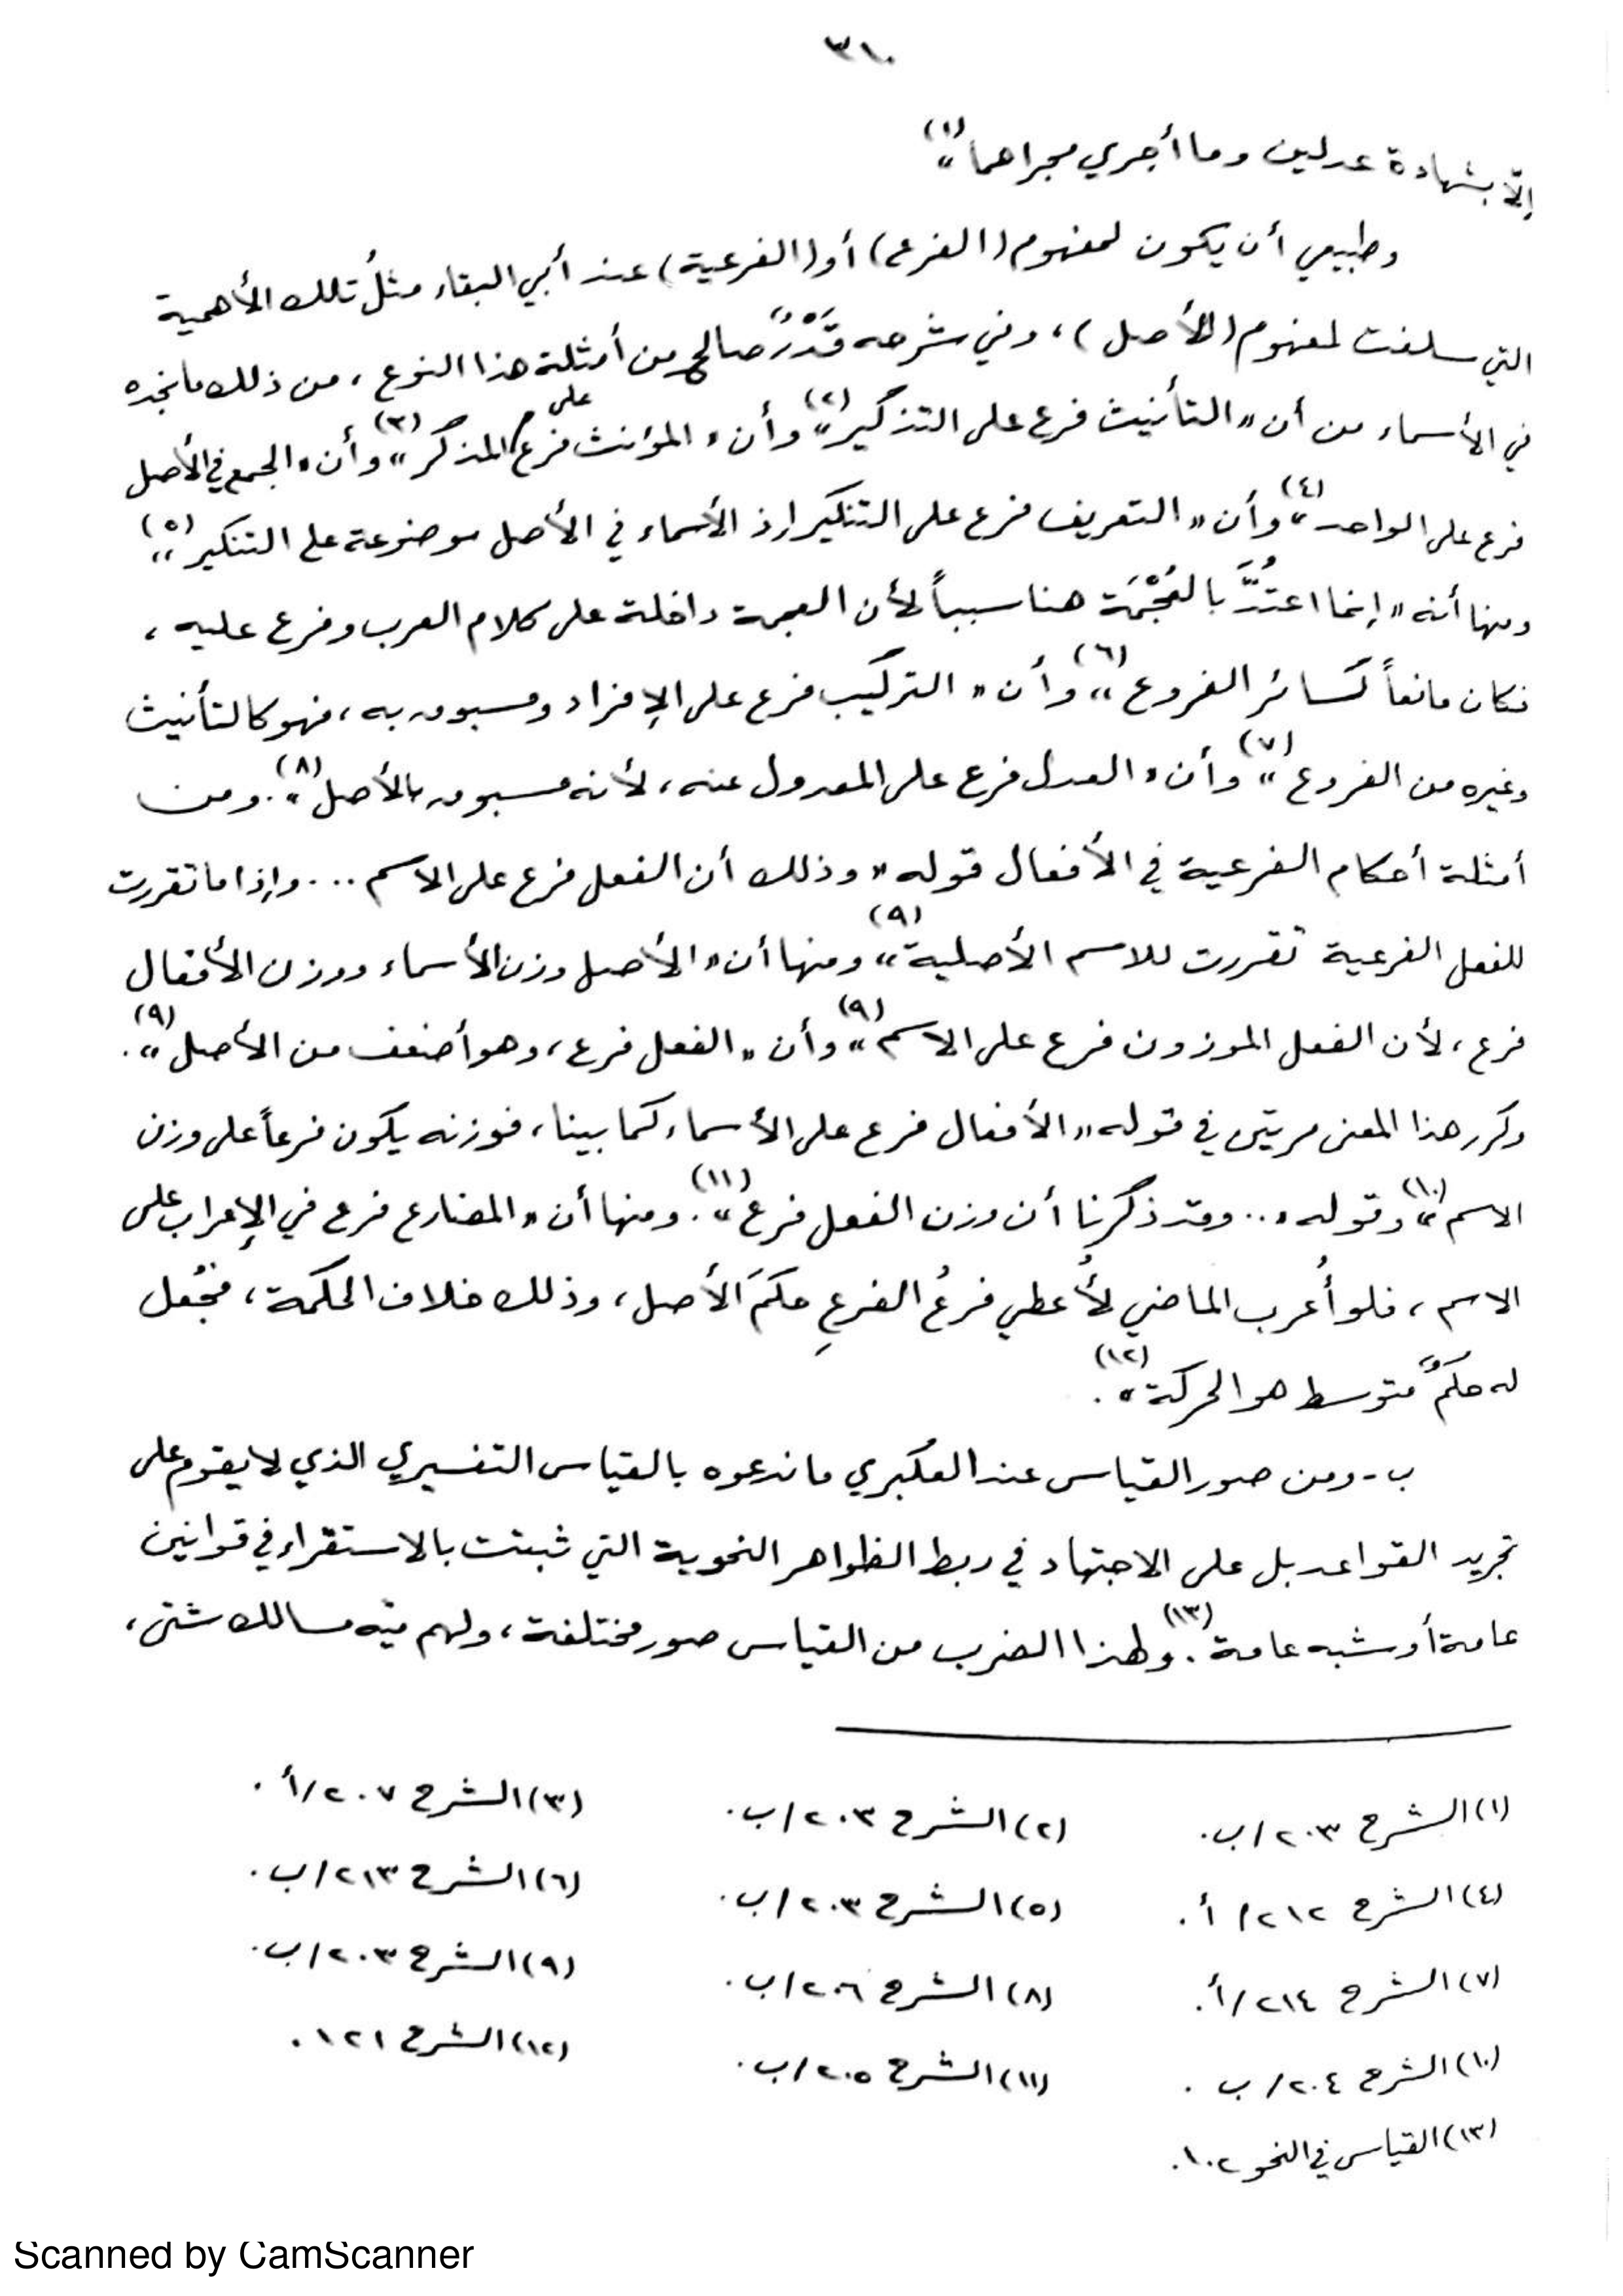 ٣١٠
إلّا بشهادة عدلين وما أجري مجراهما»(١)
وطبيعي أن يكون لمفهوم (الفرع) أو (الفرعية) عند أبي البقاء مثلُ تلك الأهمية
التي سلفت لمفهوم (الأصل)، وفي شرحه قَدْرٌ صالح من أمثلة هذا النوع، من ذلك ما نجده
في الأسماء من أن «التأنيث فرع على التذكير»(٢) وأن «المؤنث فرع على المذكر»(٣) وأن «الجمع في الأصل
فرع على الواحد»(٤) وأن «التعريف فرع على التنكير إذ الأسماء في الأصل موضوعة على التنكير»(٥)
ومنها أنه «إنما اعتُدَّ بالعُجْمَة هنا سبباً لأن العجمة داخلة على كلام العرب وفرع عليه،
فكان مانعاً كسائر الفروع»(٦) وأن «التركيب فرع على الإفراد ومسبوق به، فهو كالتأنيث
وغيره من الفروع»(٧) وأن «العدل فرع على المعدول عنه، لأنه مسبوق بالأصل»(٨). ومن
أمثلة أحكام الفرعية في الأفعال قوله «وذلك أن الفعل فرع على الاسم ... وإذا ما تقررت
للفعل الفرعية تقررت للاسم الأصلية»(٩) ومنها أن «الأصل وزن الأسماء ووزن الأفعال
فرع، لأن الفعل الموزون فرع على الاسم»(٩) وأن «الفعل فرع، وهو أضعف من الأصل»(٩).
وكرر هذا المعنى مرتين في قوله «الأفعال فرع على الأسماء كما بينا، فوزنه يكون فرعاً على وزن
الاسم»(١٠) وقوله «.. وقد ذكرنا أن وزن الفعل فرع»(١١). ومنها أن «المضارع فرع في الإعراب على
الاسم، فلو أُعرب الماضي لأُعطي فرعُ الفرعِ حكمَ الأصل، وذلك خلاف الحكمة، فجُعل
له حكمٌ متوسط هو الحركة»(١٢).
ب- ومن صور القياس عند العكبري ما ندعوه بالقياس التفسيري الذي لا يقوم على
تجريد القواعد بل على الاجتهاد في ربط الظواهر النحوية التي ثبتت بالاستقراء في قوانين
عامة أو شبه عامة(١٣). ولهذا الضرب من القياس صور مختلفة، ولهم فيه مسالك شتى،
(١) الشرح ٢٠٣/ب. (٢) الشرح ٢٠٣/ب. (٣) الشرح ٢٠٧/أ.
(٤) الشرح ٢١٢/أ. (٥) الشرح ٢٠٣/ب. (٦) الشرح ٢١٣/ب.
(٧) الشرح ٢١٤/أ. (٨) الشرح ٢٠٦/ب. (٩) الشرح ٢٠٣/ب.
(١٠) الشرح ٢٠٤/ب. (١١) الشرح ٢٠٥/ب. (١٢) الشرح ١٢١.
(١٣) القياس في النحو ١٠٢.
Scanned by CamScanner